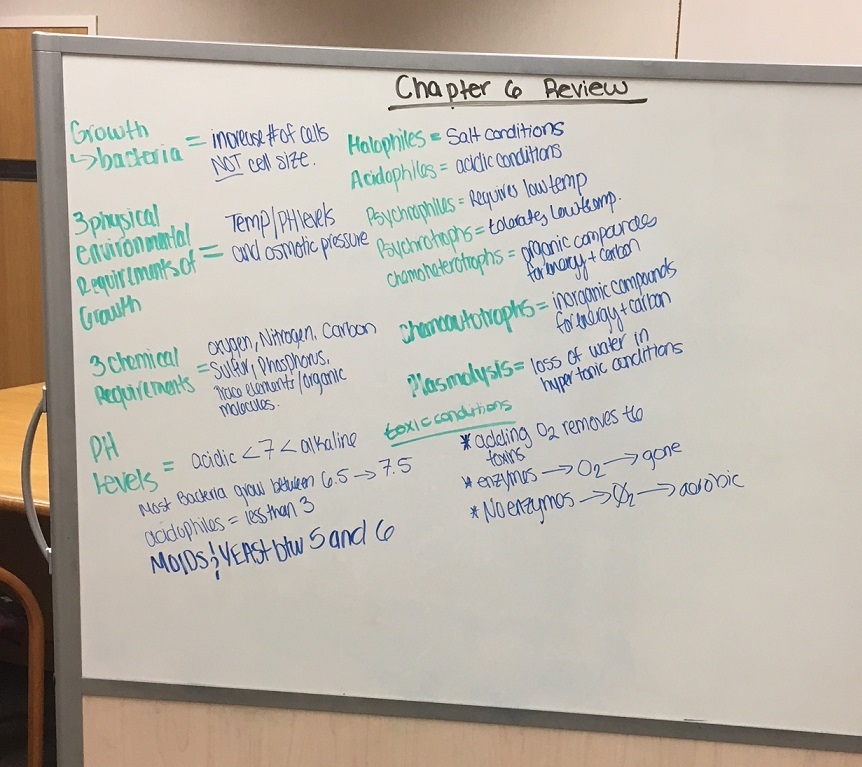 Chapter 6 Review
Growth
↳bacteria = increase # of cells
NOT cell size.
3 physical
environmental
Requirements of
Growth = Temp/PH levels
and osmotic pressure
3 chemical
Requirements = oxygen, Nitrogen, Carbon
Sulfur, Phosphorus,
Trace elements/organic
molecules.
PH
levels = acidic < 7 < alkaline
Most Bacteria grow between 6.5 → 7.5
acidophiles = less than 3
MOlDS & YEAST btw 5 and 6
Halophiles = Salt conditions
Acidophiles = acidic conditions
Psychrophiles = Requires low temp
Psychrotrophs = tolerates low temp.
chemoheterotrophs = organic compounds
for energy + carbon
Chemoautotrophs = inorganic compounds
for energy + carbon
Plasmolysis = loss of water in
hypertonic conditions
toxic conditions
* adding O2 removes the
toxins
* enzymes → O2 → gone
* No enzymes → O2 → aerobic